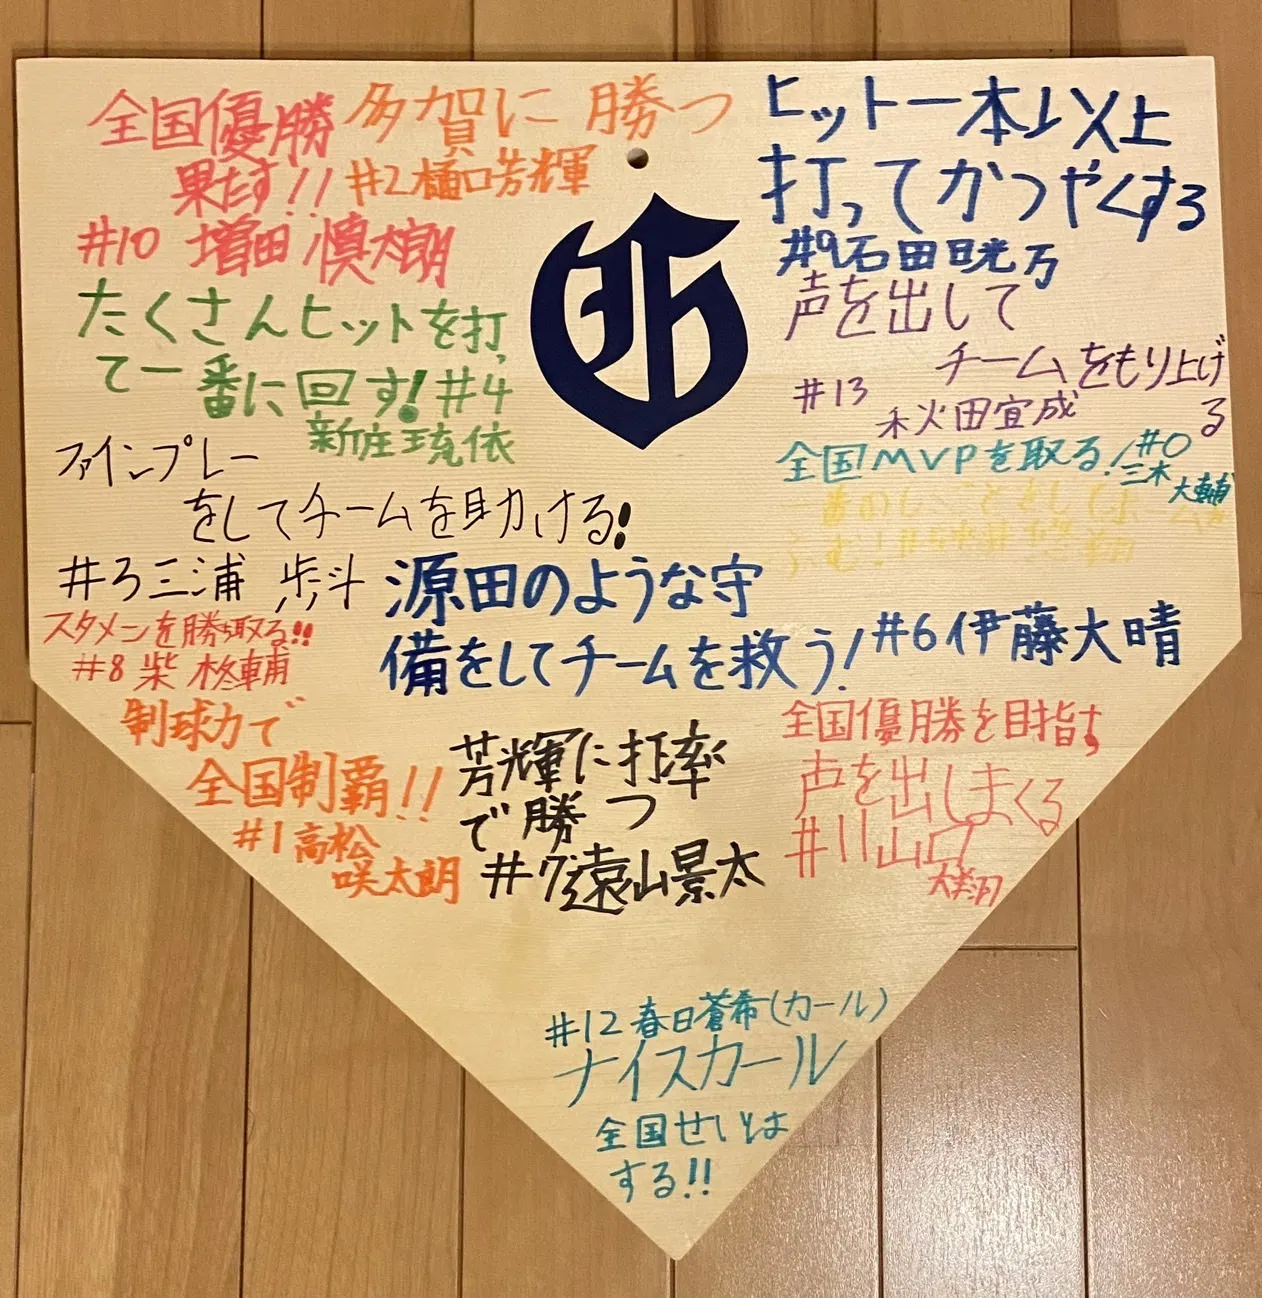 全国優勝
果たす!!
#10 増田 慎太朗
多賀に勝つ
#2樋口芳輝
ヒット一本以上
打ってかつやくする
#9石田 晄万
たくさんヒットを打っ
て一番に回す!#4
新庄琉依
G
声を出して
チームをもり上げ
る
#13
秋田宜成
全国MVPを取る!#0
三木
大輔
ファインプレー
をしてチームを助ける!
#3三浦 歩斗
源田のような守
備をしてチームを救う!#6伊藤大晴
スタメンを勝ち取る!!
#8 柴 柊輔
制球力で
全国制覇!!
#1高松
咲太朗
芳輝に打率
で勝つ
#7遠山景太
全国優勝を目指す
声を出しまくる
#11山口
大翔
#12春日蒼希(カール)
ナイスカール
全国せいは
する!!